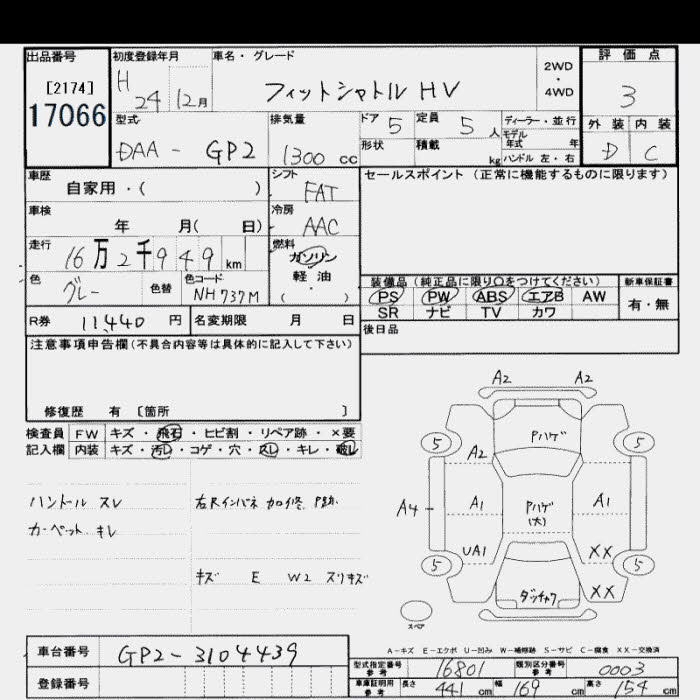 出品番号
[2174]
17066
初度登録年月
H 24 12月
車名・グレード
フィットシャトル HV
2WD
・
4WD
評価点
3
外装 内装
D C
型式
DAA - GP2
排気量
1300 cc
ドア 5
定員 5 人
形状
積載 kg
ディーラー・並行
モデル
年式 年
ハンドル 左・右
車歴
自家用・( )
シフト
FAT
セールスポイント (正常に機能するものに限ります)
車検
年 月( 日)
冷房
AAC
走行
16万2千949 km
燃料
ガソリン
軽油
( )
色
グレー
色替
色コード
NH737M
装備品 (純正品に限り○をつけてください)
PS PW ABS エアB AW
SR ナビ TV カワ
新車保証書
有・無
R券 11,440 円
名変期限 月 日
後日品
注意事項申告欄(不具合内容等は具体的に記入して下さい)
修復歴 有 [箇所 ]
検査員 FW キズ・飛石・ヒビ割・リペア跡・×要
記入欄 内装 キズ・汚レ・コゲ・穴・スレ・キレ・破レ
ハンドル スレ
カーペット キレ
右Rインパネ カロイ修、P跡、
キズ E W2 スリキズ
A2 A2
Pハゲ
5 5
A2
A4 A1 Pハゲ A1
(大)
UA1 XX
5 5
XX
ダッチャク
スペア
A-キズ E-エクボ U-凹み W-補修跡 S-サビ C-腐食 XX-交換済
車台番号 GP2-3104439
登録番号
型式指定番号
参考
16801
類別区分番号
参考
0003
車庫証明用
参考
長さ 441 cm 幅 169 cm 高さ 154 cm